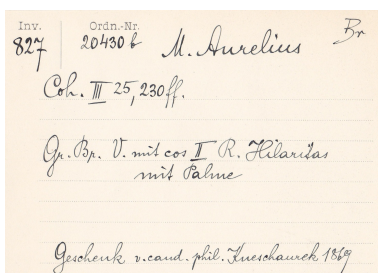 Inv. Ordn.-Nr. Br
827 20430 b M. Aurelius
Coh. III 25, 230 ff.
Gr. Br. V. mit cos II R. Hilaritas
mit Palme
Geschenk v. cand. phil. Kneschaurek 1869